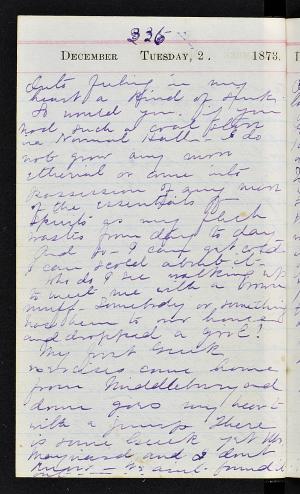 336
DECEMBER TUESDAY, 2. 1873.
Quite feeling in my
heart a kind of spunk.
So would you if you
had such a cold place
in Normal Hall. I do
not grow any more
etherial or come into
possession of any more
of the essentials to
spirits as my flesh
wastes from day to day
And so I can get cold
I can scold about it.
Who do I see walking up
to meet me with a brown
muff. Somebody or something
has been to our house
and dropped a girl!
My first Greek
exercises come home
from Middlebury and
down goes my heart
with a jump. There
is some Greek yet Mr
Maynard and I don't